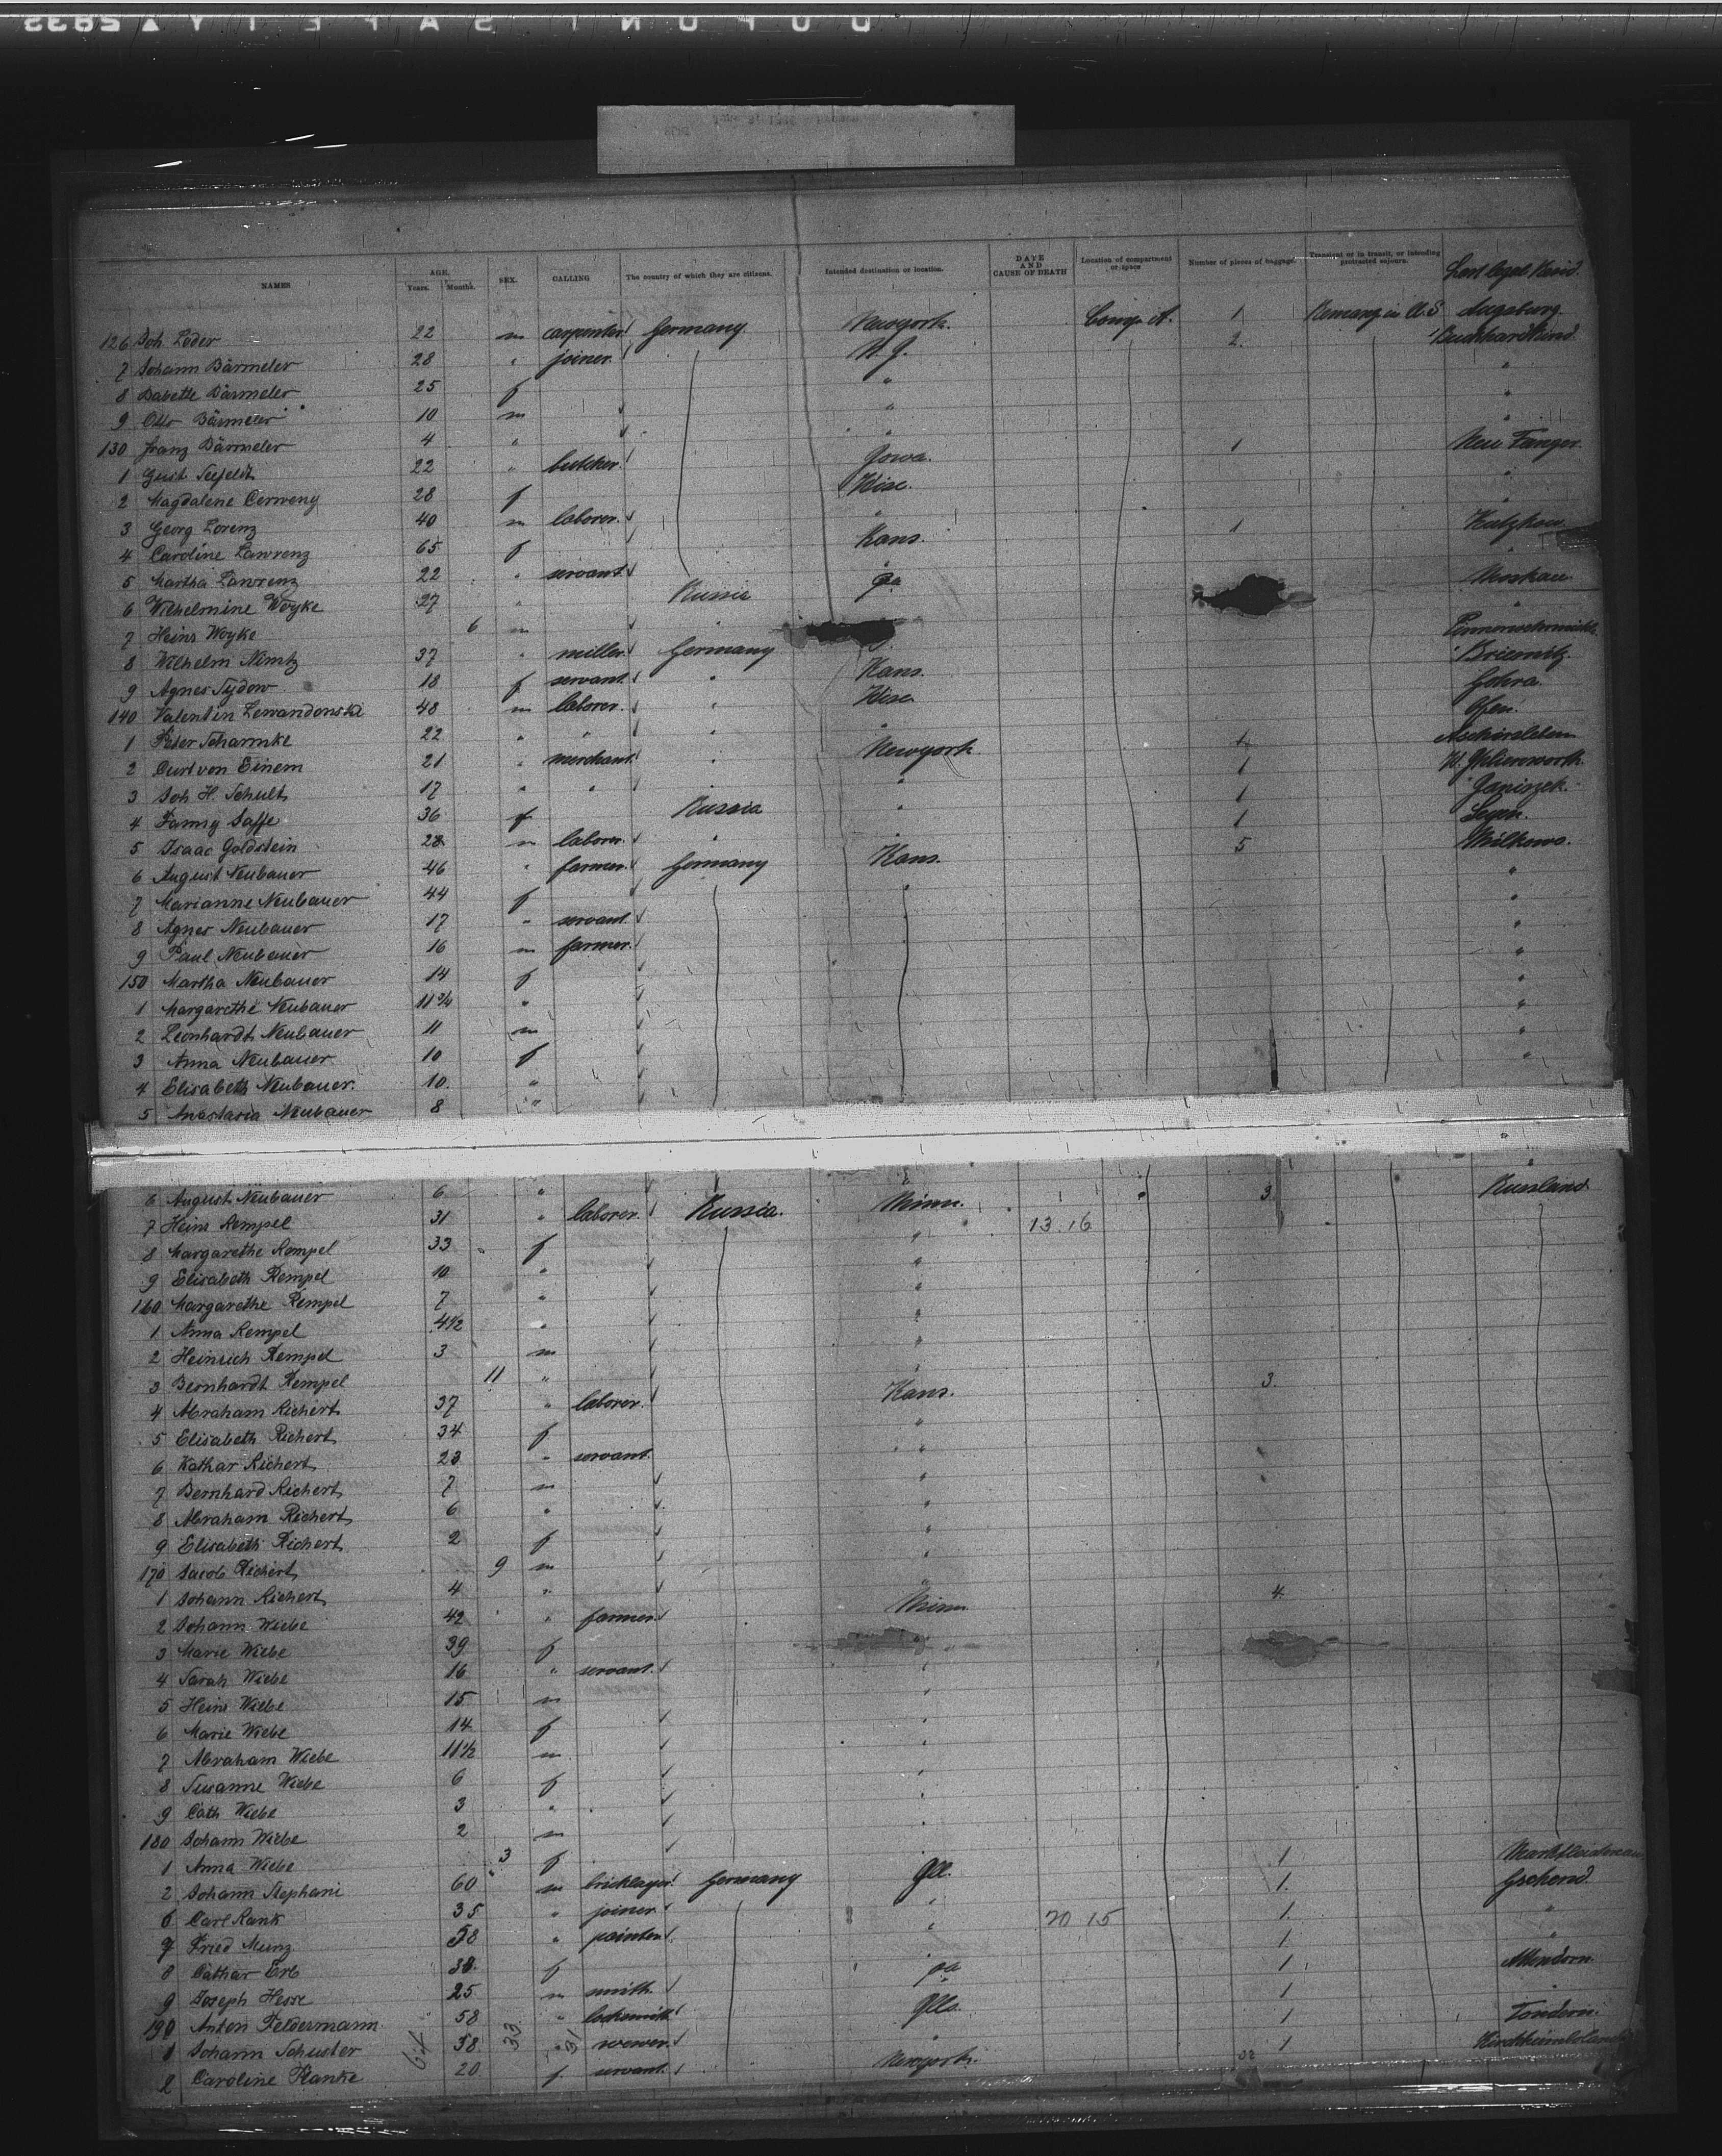 NAMES AGE. Years. Months. SEX. CALLING The country of which they are citizens. Intended destination or location. DATE AND CAUSE OF DEATH Location of compartment or space Number of pieces of baggage. Transient or in transit, or intending protracted sojourn. Last legal Resid.
126 Joh. Leder 22 m carpenter Germany Newyork. Comp. A. 1 Remang in U.S Augsburg.
7 Johann Bärmeler 28 " joiner N. J. 2.
8 Babette Bärmeler 25 f "
9 Otto Bärmeler 10 m "
130 Franz Bärmeler 4 " "
1 Gust Seefeldt 22 " butcher Iowa. 1
2 Magdalene Cerweny 28 f Wisc.
3 Georg Lorenz 40 m laborer. "
4 Caroline Lawrenz 65 f Kans. 1
5 Martha Lawrenz 22 " servant "
6 Wilhelmine Woyke 27 " Russia Pa
7 Heinr Woyke 6 m
8 Wilhelm Nimtz 37 " miller Germany
9 Agnes Sydow 18 f servant " Kans.
140 Valentin Lewandonski 48 m laborer. " Wisc
1 Peter Scharmke 22 " " " "
2 Curt von Einem 21 " merchant " Newyork 1 Aschersleben
3 Joh H. Schult 17 " " " 1
4 Fanny Jaffe 36 f Russia " 1 Janiszek.
5 Isaac Goldstein 28 m laborer " " 1
6 August Neubauer 46 " farmer Germany Kans. 5 Wilkowo.
7 Marianne Neubauer 44 f "
8 Agnes Neubauer 17 " servant. "
9 Paul Neubauer 16 m farmer. "
150 Martha Neubauer 14 f "
1 Margarethe Neubauer 11 3/4 " "
2 Leonhardt Neubauer 11 m "
3 Anna Neubauer 10 f "
4 Elisabeth Neubauer. 10. " "
5 Anastasia Neubauer 8 "
6 August Neubauer 6 "
7 Heinr Rempel 31 " laborer. Russia. Minn. 13.16 3 Russland
8 Margarethe Rempel 33 f "
9 Elisabeth Rempel 10 " "
160 Margarethe Rempel 7 " "
1 Anna Rempel 4 1/2 " "
2 Heinrich Rempel 3 m "
3 Bernhardt Rempel 11 " "
4 Abraham Richert 37 " laborer. Kans. 3.
5 Elisabeth Richert 34 f "
6 Kathar Richert 23 " servant. "
7 Bernhard Richert 7 m "
8 Abraham Richert 6 " "
9 Elisabeth Richert 2 f "
170 Jacob Richert 9 m "
1 Johann Richert 4 " "
2 Johann Wiebe 42 " farmer Minn 4.
3 Marie Wiebe 39 f "
4 Sarah Wiebe 16 " servant. "
5 Heinr Wiebe 15 m "
6 Marie Wiebe 14 f "
7 Abraham Wiebe 11 1/2 m "
8 Susanne Wiebe 6 f "
9 Cath Wiebe 3 " "
180 Johann Wiebe 2 m "
1 Anna Wiebe 3 f
2 Johann Stephani 60 m bricklayer Germany Ill. 1
6 Carl Rank 35 " joiner " 1. Gschend.
7 Fried Munz 58 " painter " 20 15 1. "
8 Cathar Erb 38. f 1. "
9 Joseph Hesse 25 m smith. pa 1 Attendorn
190 Anton Feldermann 58 " locksmith " 1
1 Johann Schuster 58. " weaver Ills. 1 Tondern.
2 Caroline Planke 20 f servant Newyork. 1
64 33 31 32
SAFETY